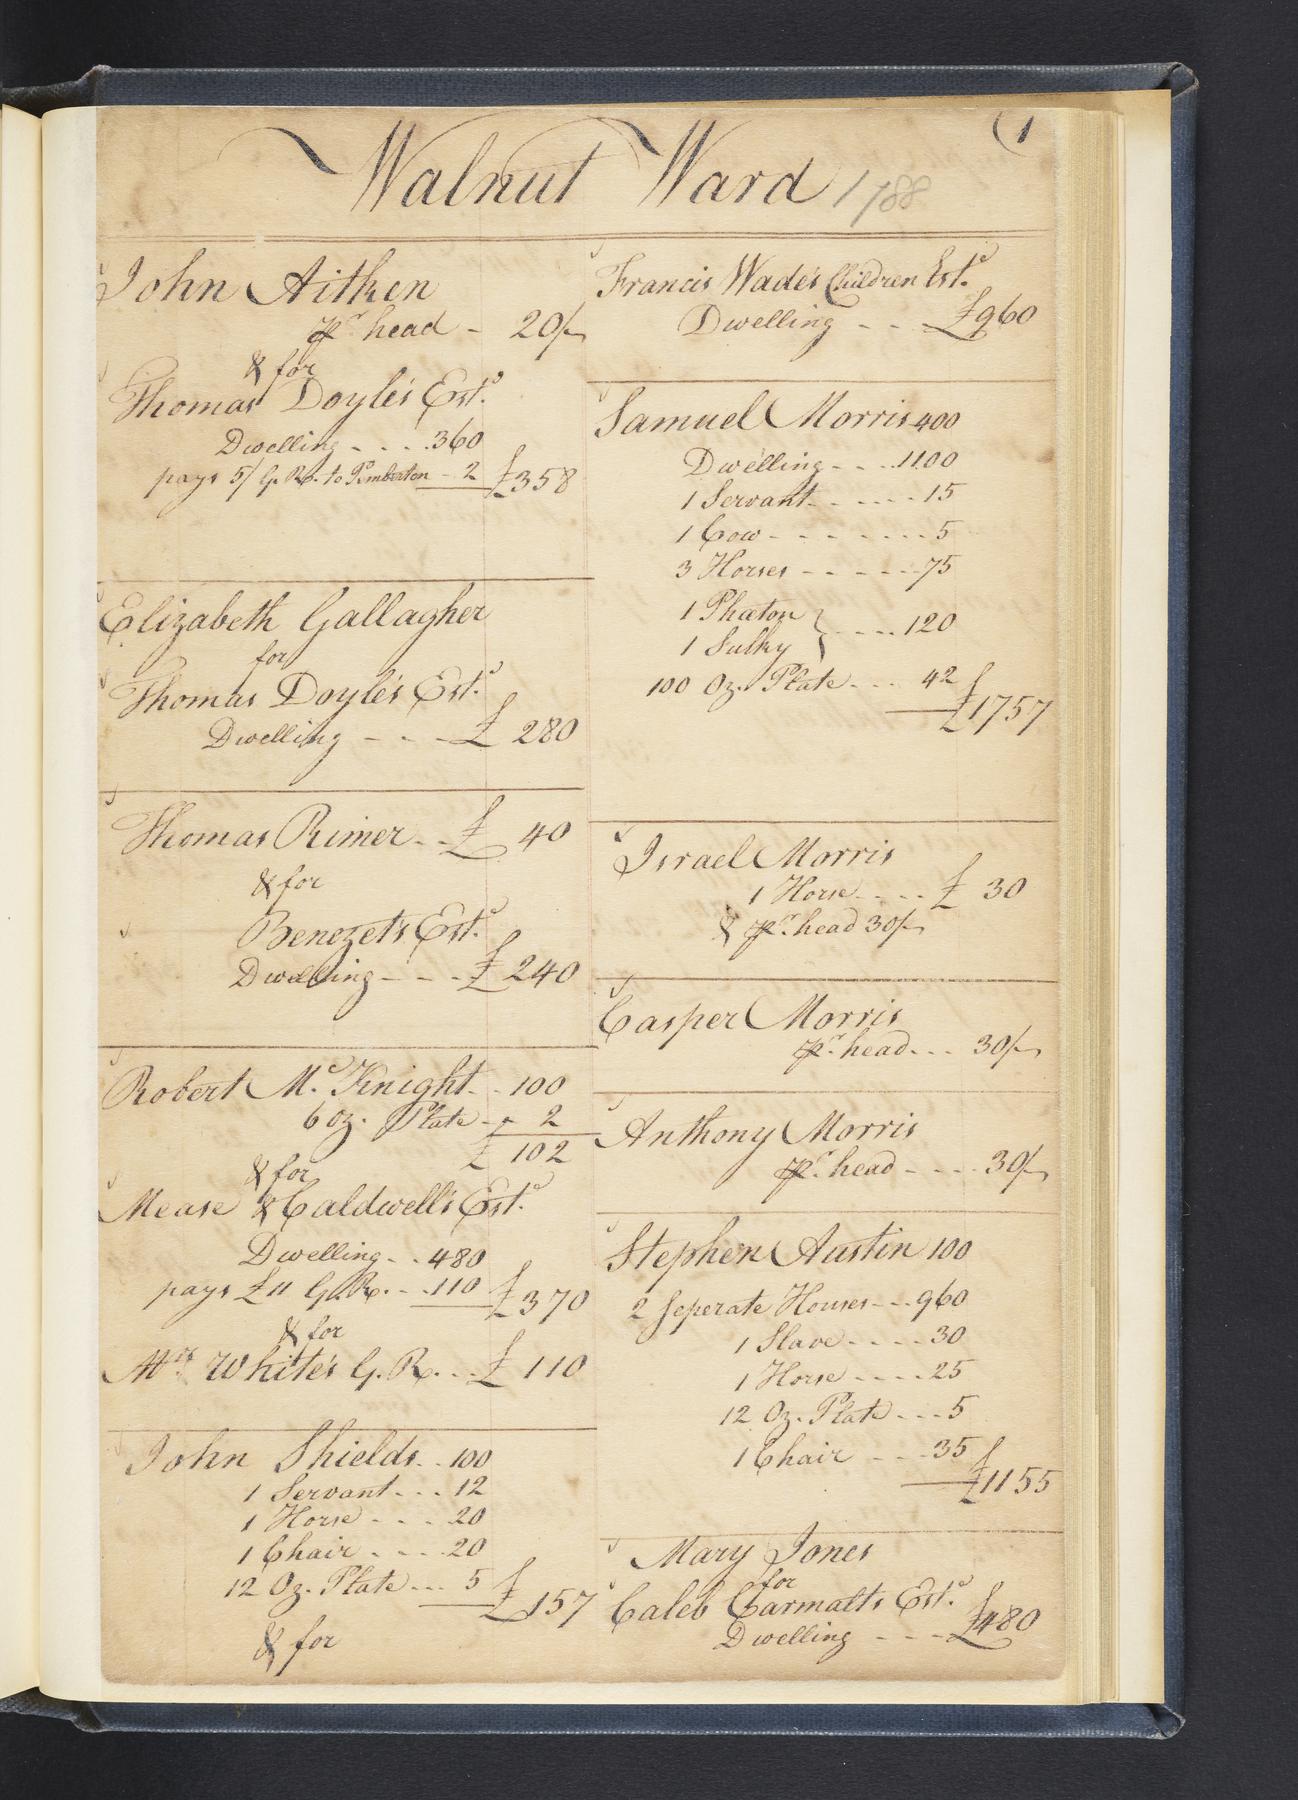 (1
Walnut Ward 1788
John Aitken
pr. head - 20/-
& for
Thomas Doyle's Est.e
Dwelling - - - . 360
pays 5/ G. R. to Pemberton - 2 £358
Elizabeth Gallagher
for
Thomas Doyle's Est.e
Dwelling - - - £ 280
Thomas Rimer - - £ 40
& for
Benezet's Est.e
Dwelling - - - £ 240
Robert Mc. Knight - - 100
6 oz. Plate - - 2
£ 102
& for
Mease & Caldwell's Est.e
Dwelling - - 480
pays £11 G. R. - - 110 £370
& for
Mrs. White's G. R. - - £ 110
John Shields - - 100
1 Servant - - - 12
1 Horse - - - 20
1 Chair - - - 20
12 Oz. Plate - - - 5 £157
& for
Francis Wade's Children Est.e
Dwelling - - - £960
Samuel Morris 400
Dwelling - - - 1100
1 Servant - - - - - 15
1 Cow - - - - - - - 5
3 Horses - - - - - 75
1 Phaton
1 Sulky } - - - - 120
100 Oz. Plate - - - 42
£1757
Israel Morris
1 Horse - - - - £ 30
& pr. head 30/-
Casper Morris
pr. head - - - 30/-
Anthony Morris
pr. head - - - - 30/-
Stephen Austin 100
2 Seperate Houses - - - 960
1 Slave - - - - 30
1 Horse - - - - 25
12 Oz. Plate - - - 5
1 Chair - - - 35
£1155
Mary Jones
for
Caleb Carmalts Est.e
Dwelling - - - £480